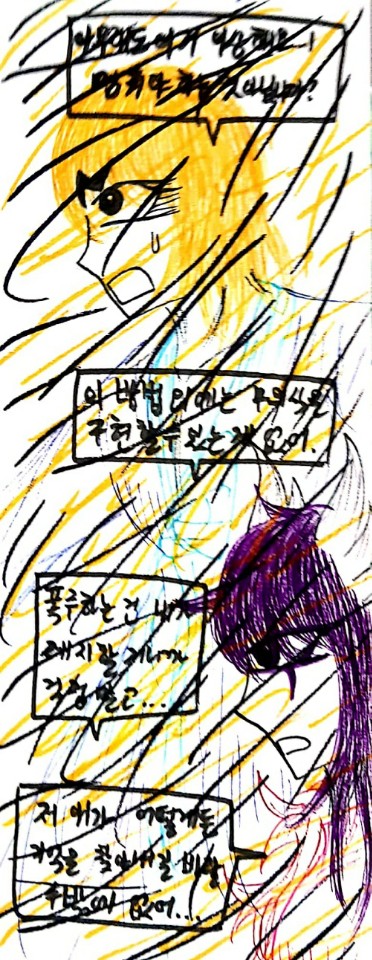 아무래도 여기 이상해요..!
멈춰야 하는 것 아닙니까?
이 방법 외에는 무의식을
구현할 수 있는 게 없어.
폭주하는 건 내가
제지할 거니까
걱정 말고...
저 애가 어떻게든
기억을 찾아내길 바랄
수밖에 없어...